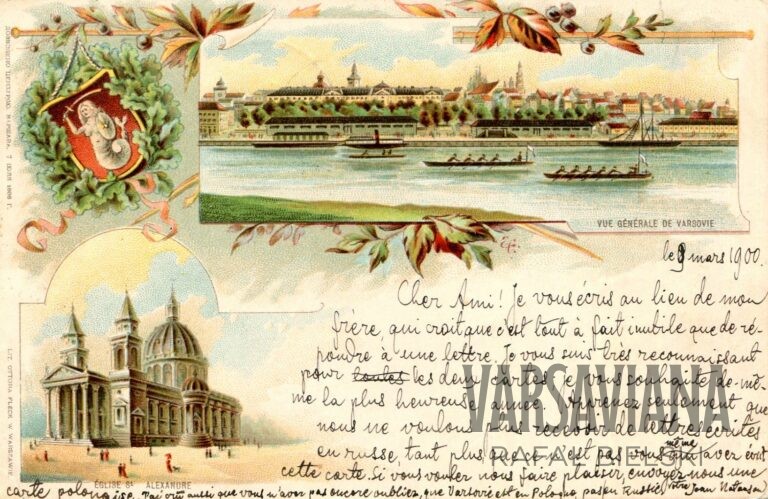 VUE GÉNÉRALE DE VARSOVIE
le 8 mars 1900.
Cher Ami! Je vous écris au lieu de mon
frère, qui croit que c'est tout à fait inutile que de ré-
pondre à une lettre. Je vous suis très reconnaissant
pour toutes les deux cartes, je vous souhaite de mê-
me la plus heureuse année. Apprenez seulement que
nous ne voulons plus recevoir de lettres écrites
en russe, tant plus que ce n'est pas vous même qui avez écrit
cette carte. Si vous voulez nous faire plaisir, envoyez-nous une
carte polonaise. J'ai cru aussi que vous n'avez pas encore oubliez, que Varsovie est en Pologne pas en Russie! Votre Jean Natanson
ÉGLISE St ALEXANDRE
ДОЗВОЛЕНО ЦЕНЗУРОЮ
LIT. OTTONA FLECK. W WARSZAWIE
VARSAVIANA
RAFAŁ BIELSKI